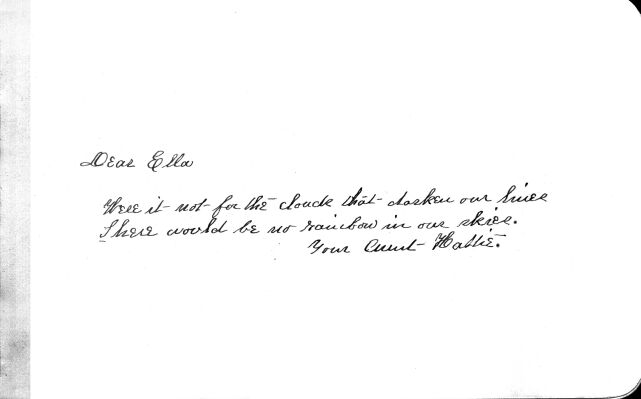 Dear Ella
Were it not for the clouds that darken our
There would be no rainbow in our skies.
Your Aunt Hattie.